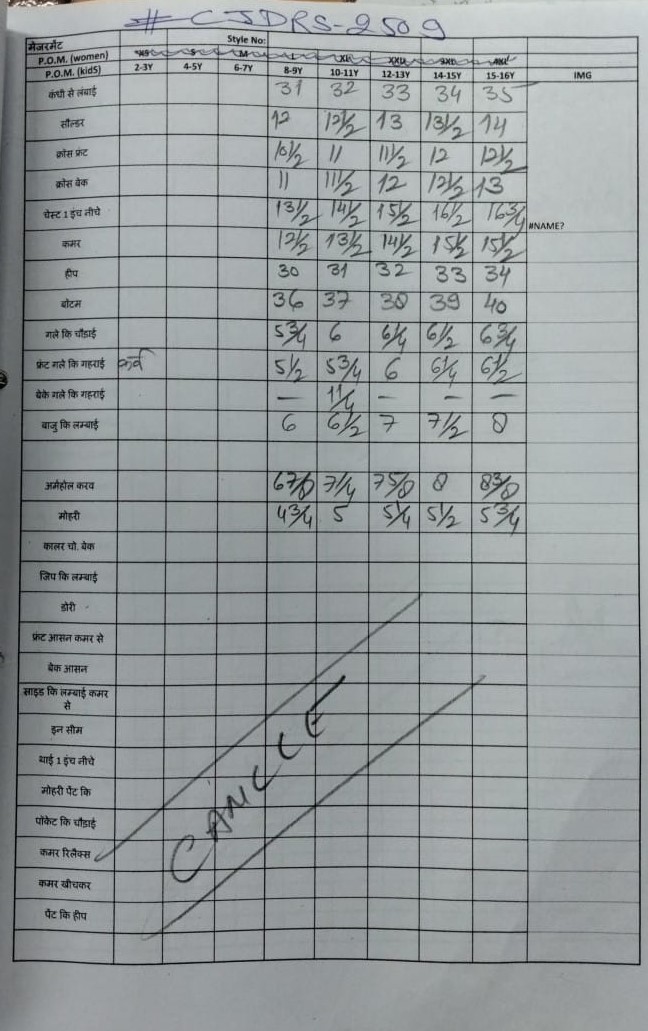 # CJDRS-2509
मेजरमेंट Style No:
P.O.M. (women) XS S M L XL XXL 3XL 4XL
P.O.M. (kidS) 2-3Y 4-5Y 6-7Y 8-9Y 10-11Y 12-13Y 14-15Y 15-16Y IMG
कंधी से लंबाई 31 32 33 34 35
सौल्डर 12 12 1/2 13 13 1/2 14
क्रोस फ्रंट 10 1/2 11 11 1/2 12 12 1/2
क्रोस बेक 11 11 1/2 12 12 1/2 13
चेस्ट 1 इंच नीचे 13 1/2 14 1/2 15 1/2 16 1/2 16 3/4 #NAME?
कमर 12 1/2 13 1/2 14 1/2 15 1/2 15 1/2
हीप 30 31 32 33 34
बोटम 36 37 38 39 40
गले कि चौडाई 5 3/4 6 6 1/4 6 1/2 6 3/4
फ्रंट गले कि गहराई कर्व 5 1/2 5 3/4 6 6 1/4 6 1/2
बेके गले कि गहराई — 1 1/4 — — —
बाजु कि लम्बाई 6 6 1/2 7 7 1/2 8
अर्महोल करव 6 7/8 7 1/4 7 5/8 8 8 3/8
मोहरी 4 3/4 5 5 1/4 5 1/2 5 3/4
कालर चो. बेक
जिप कि लम्बाई
डोरी
फ्रंट आसन कमर से
बेक आसन
साइड कि लम्बाई कमर
से
इन सीम
थाई 1 इंच नीचे
मोहरी पेंट कि
पॉकेट कि चौडाई
कमर रिलैक्स
कमर खीचकर
पेंट कि हीप
CANCLE